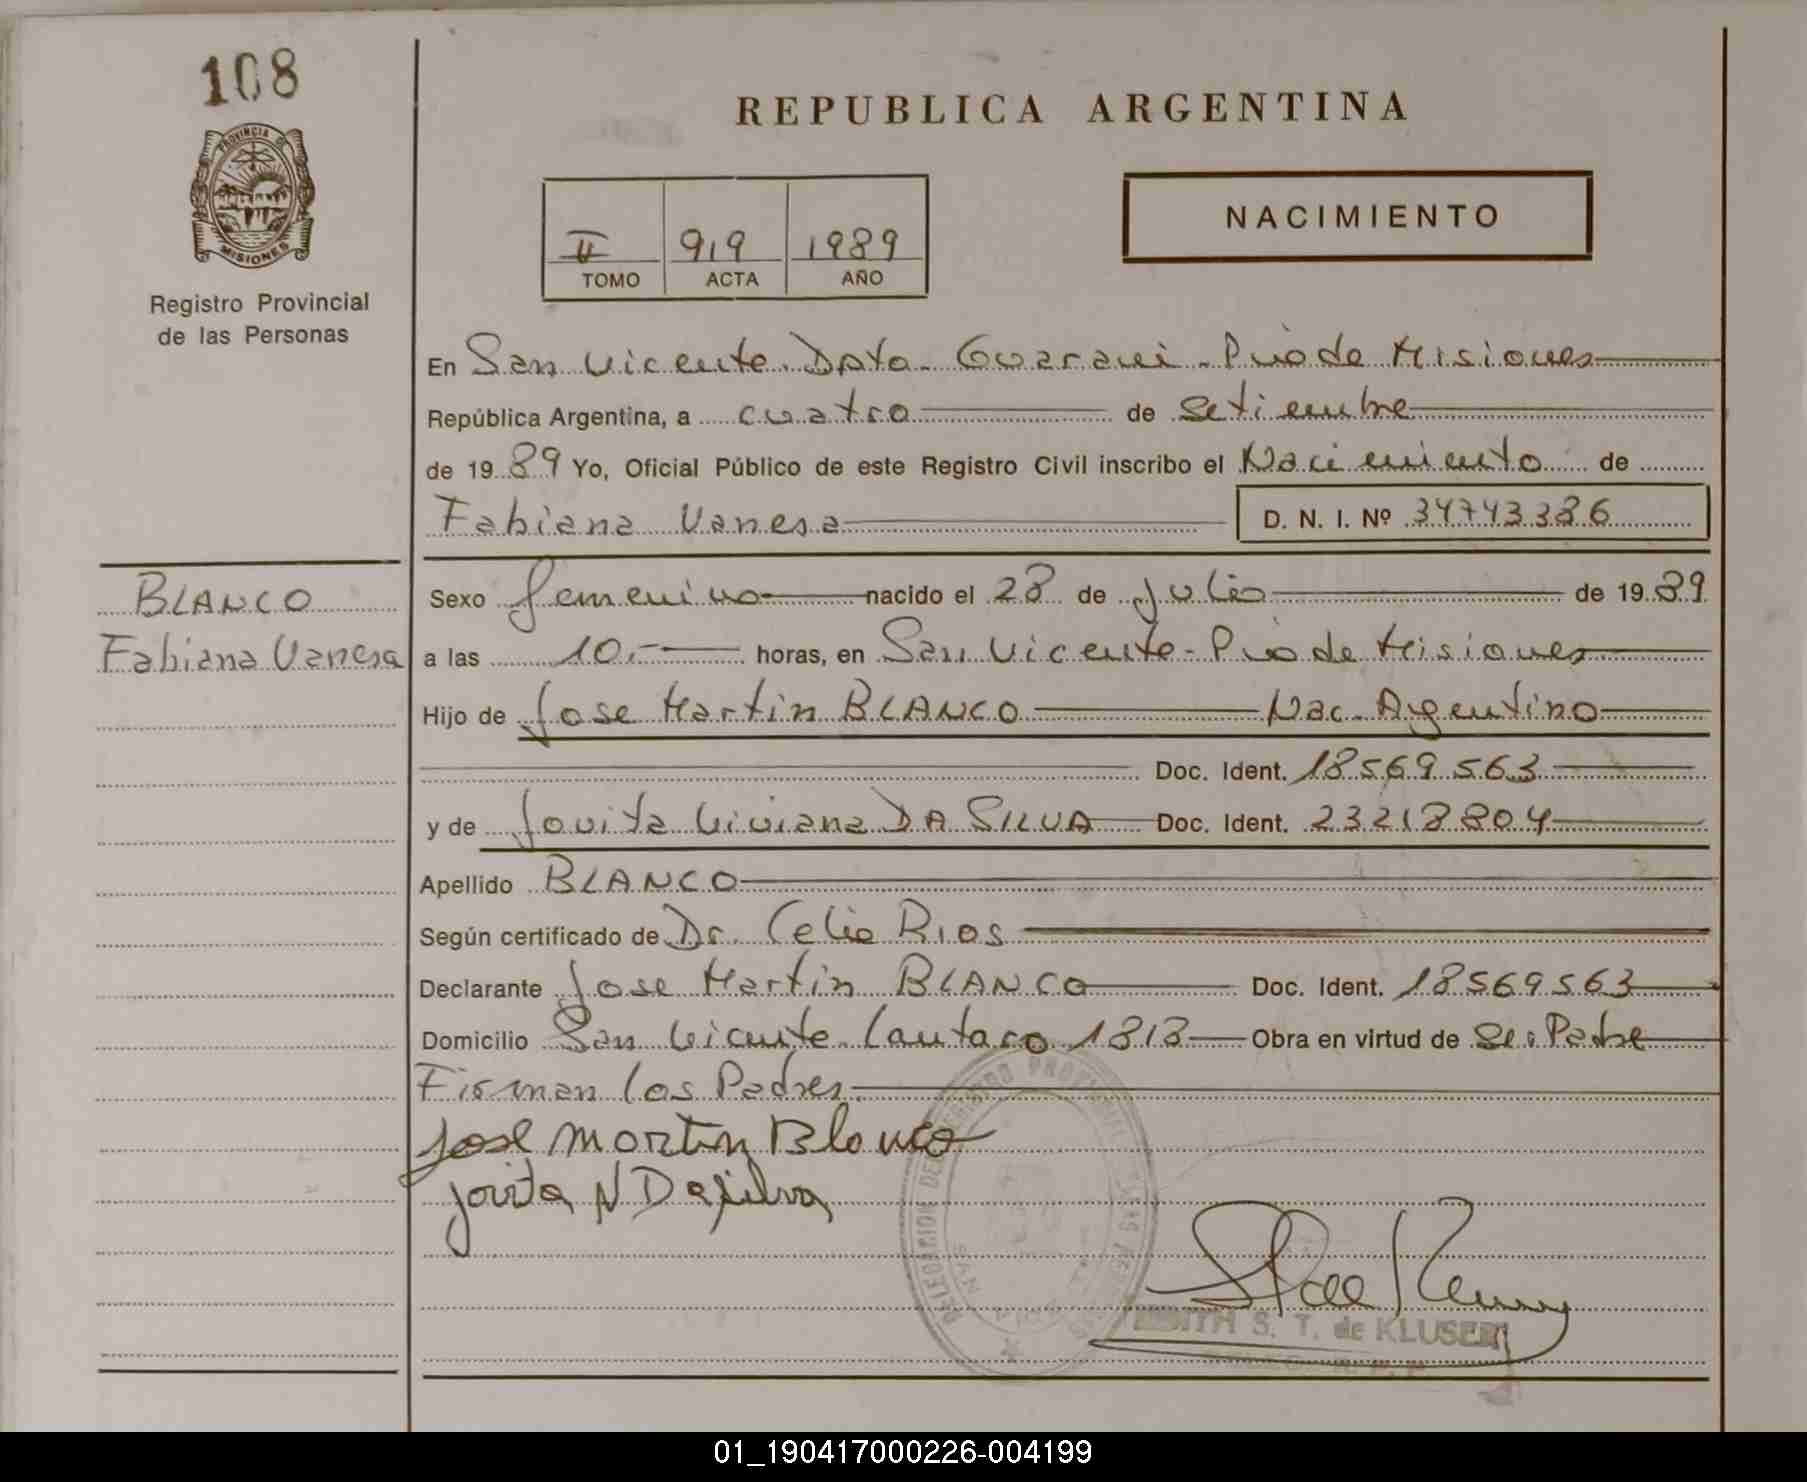 108
PROVINCIA DE
MISIONES
Registro Provincial
de las Personas
REPUBLICA ARGENTINA
NACIMIENTO
II 919 1989
TOMO ACTA AÑO
En San Vicente Dpto. Guarani - Pvio de Misiones
República Argentina, a cuatro de Setiembre
de 1989 Yo, Oficial Público de este Registro Civil inscribo el Nacimiento de
Fabiana Vanesa D. N. I. Nº 34743386
BLANCO
Fabiana Vanesa
Sexo femenino nacido el 28 de Julio de 1989
a las 10.- horas, en San Vicente - Pvio de Misiones
Hijo de Jose Martin BLANCO Nac. Argentino
Doc. Ident. 18569563
y de Jovita Viviana DA SILVA Doc. Ident. 23218804
Apellido BLANCO
Según certificado de Dr. Celio Rios
Declarante Jose Martin BLANCO Doc. Ident. 18569563
Domicilio San Vicente Lautaro 1818 Obra en virtud de Se. Padre
Firman los Padres.
Jose Martin Blanco
Jovita N Da Silva
S. T. de KLUSER
01_190417000226-004199